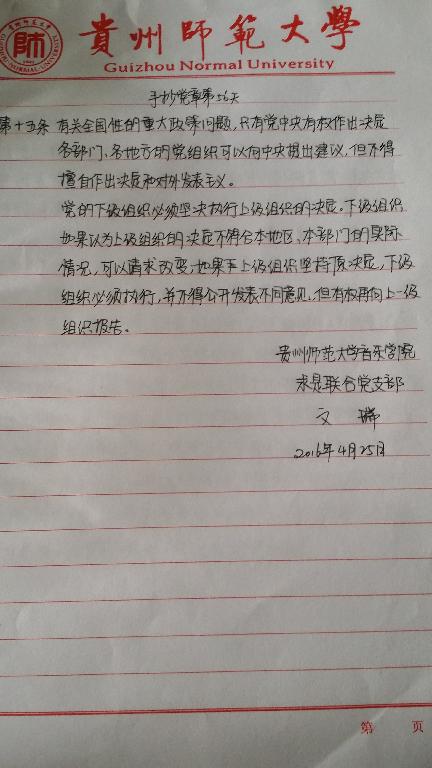 貴州師範大學
Guizhou Normal University
手抄党章第56天
第十五条 有关全国性的重大政策问题，只有党中央有权作出决定
各部门、各地方的党组织可以向中央提出建议，但不得
擅自作出决定和对外发表主义。
党的下级组织必须坚决执行上级组织的决定。下级组织
如果认为上级组织的决定不符合本地区、本部门的实际
情况，可以请求改变；如果上级组织坚持原决定，下级
组织必须执行，并不得公开发表不同意见，但有权再向上一级
组织报告。
贵州师范大学音乐学院
求是联合党支部
文 瑞
2016年4月25日
第 页